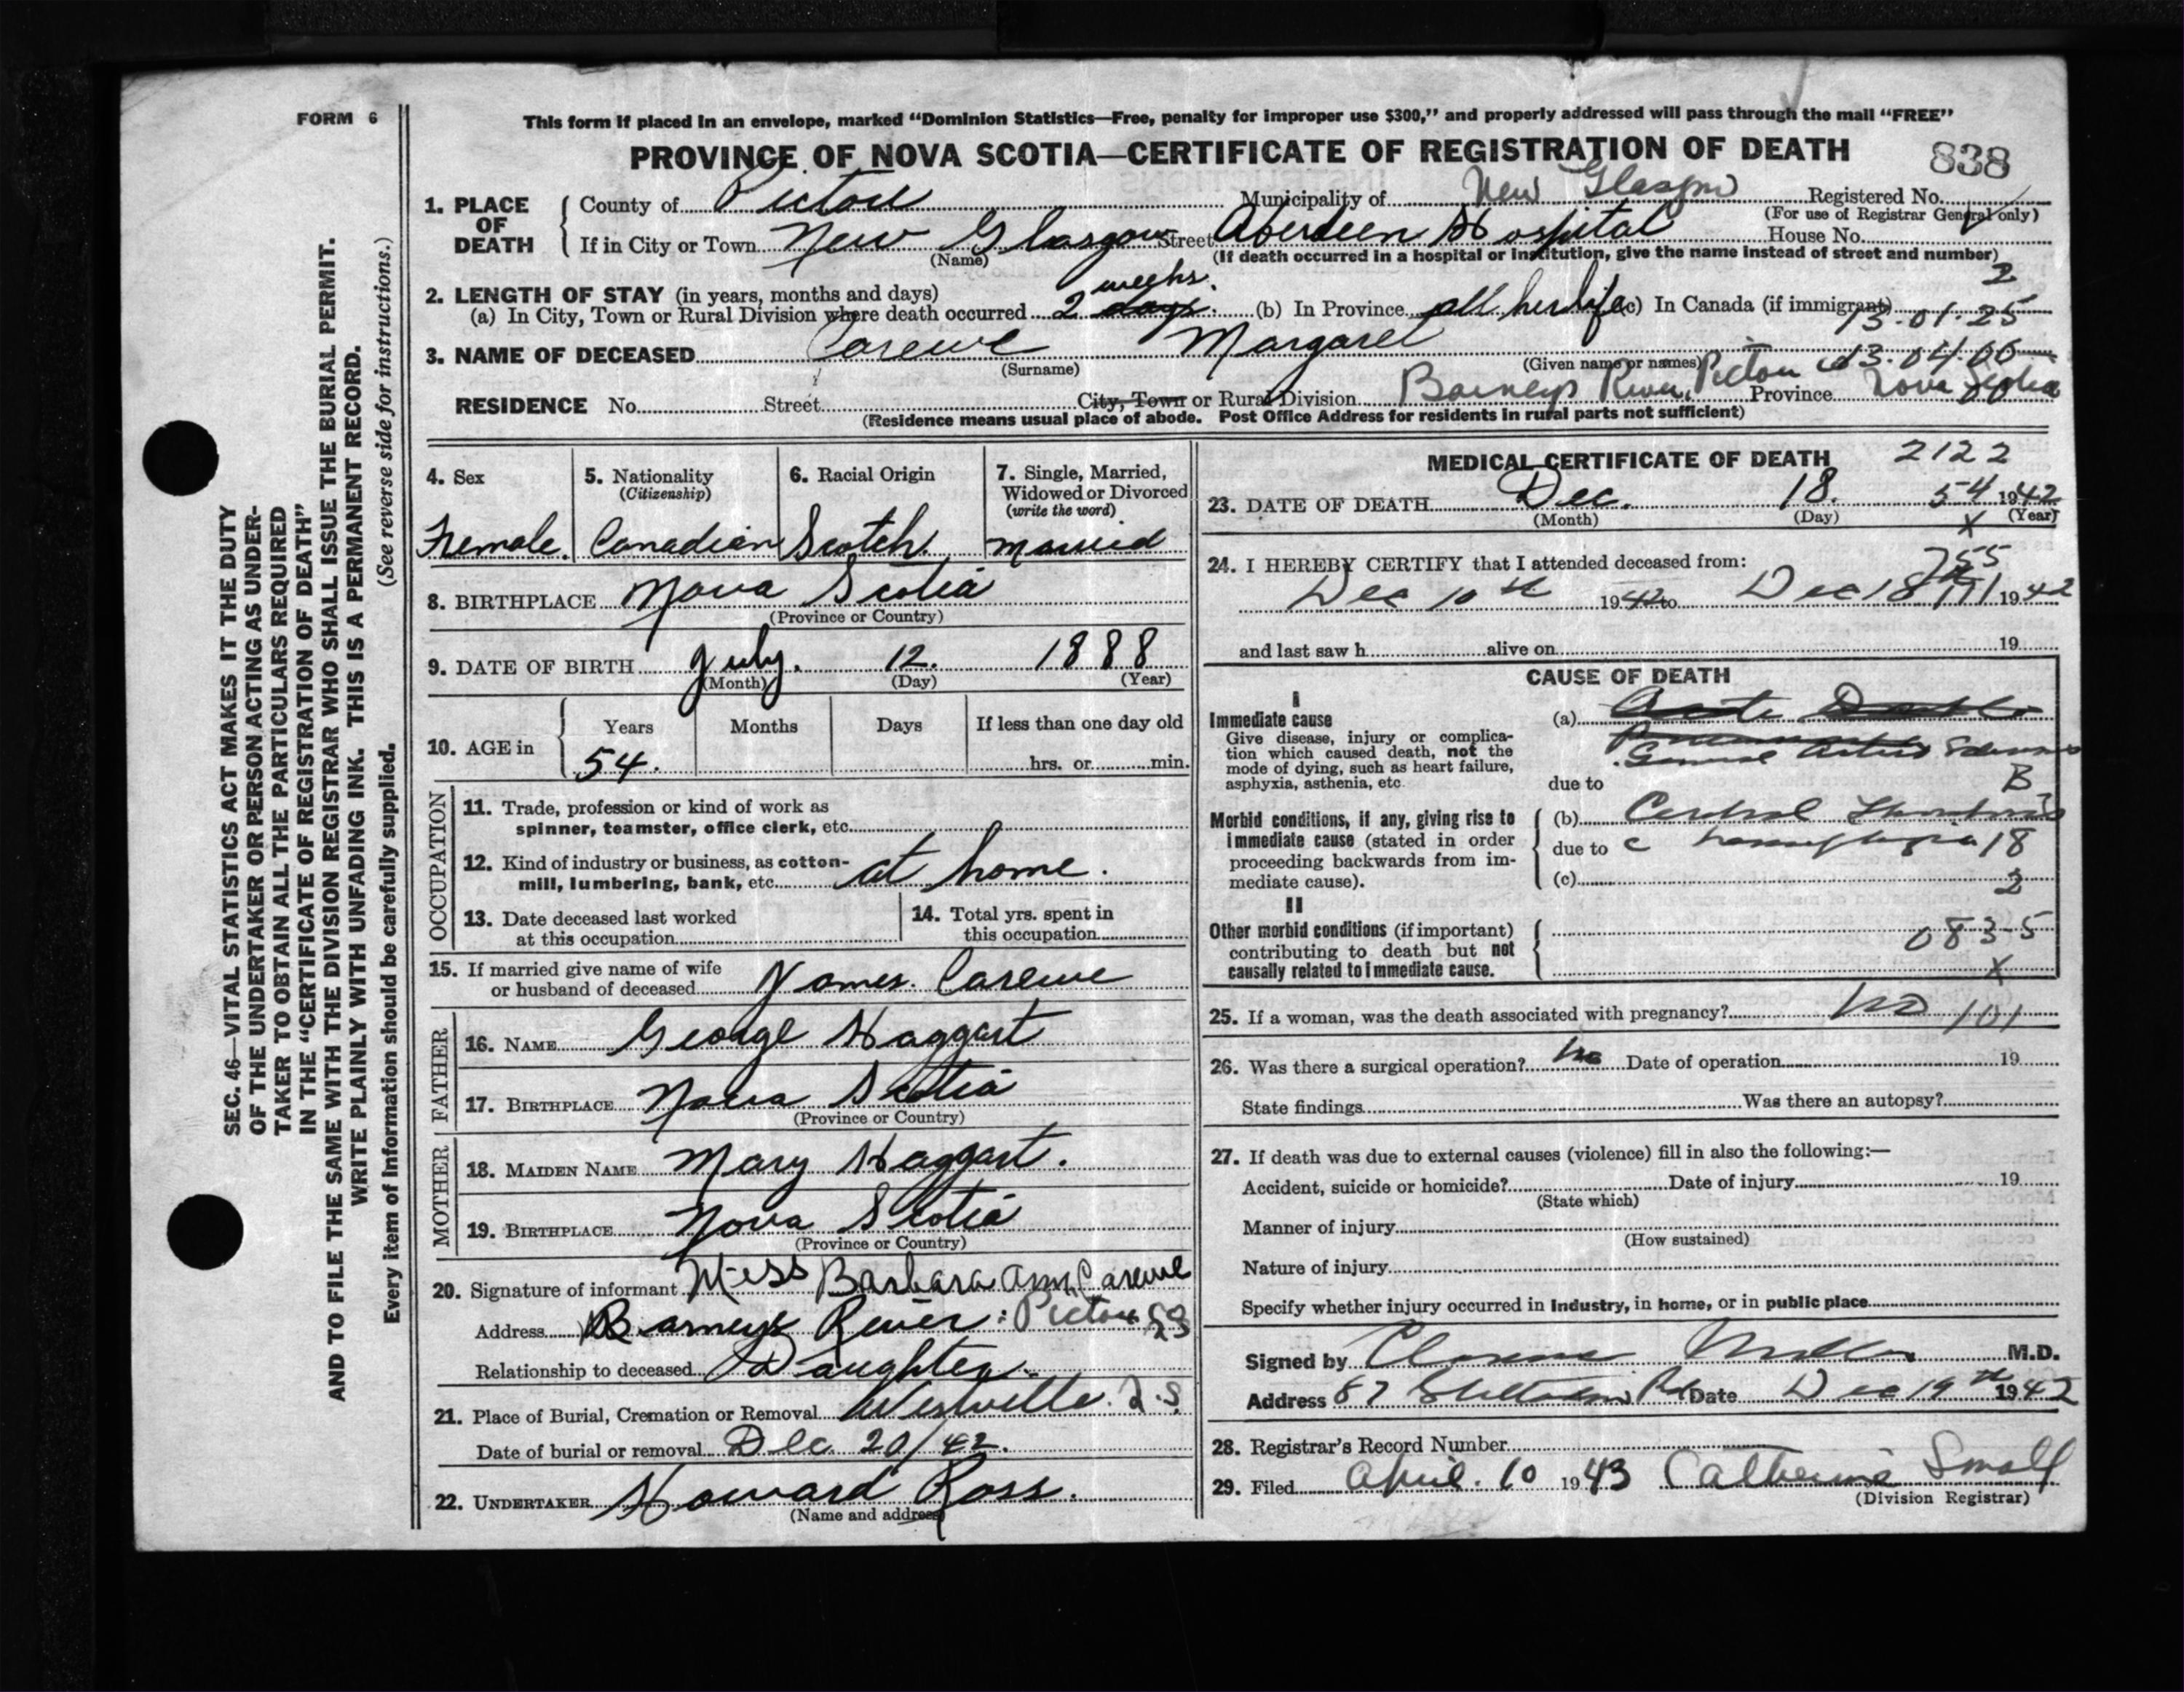 FORM 6
This form if placed in an envelope, marked “Dominion Statistics—Free, penalty for improper use $300,” and properly addressed will pass through the mail “FREE”
PROVINCE OF NOVA SCOTIA—CERTIFICATE OF REGISTRATION OF DEATH
838
1. PLACE OF DEATH
County of Pictou Municipality of New Glasgow Registered No.
(For use of Registrar General only)
If in City or Town New Glasgow Street Aberdeen Hospital House No.
(Name) (If death occurred in a hospital or institution, give the name instead of street and number)
2
2. LENGTH OF STAY (in years, months and days) weeks.
(a) In City, Town or Rural Division where death occurred 2 days. (b) In Province all her life (c) In Canada (if immigrant)
13.01.25
3. NAME OF DECEASED Carewe Margaret
(Surname) (Given name or names)
13.04.00
RESIDENCE No. Street City, Town or Rural Division Barneys River, Pictou co Province Nova Scotia
00
(Residence means usual place of abode. Post Office Address for residents in rural parts not sufficient)
4. Sex
Female.
5. Nationality
(Citizenship)
Canadian
6. Racial Origin
Scotch
7. Single, Married, Widowed or Divorced
(write the word)
married
8. BIRTHPLACE Nova Scotia
(Province or Country)
9. DATE OF BIRTH July. 12. 1888
(Month) (Day) (Year)
10. AGE in
Years Months Days If less than one day old
54. hrs. or min.
OCCUPATION
11. Trade, profession or kind of work as
spinner, teamster, office clerk, etc.
12. Kind of industry or business, as cotton-
mill, lumbering, bank, etc. at home.
13. Date deceased last worked
at this occupation
14. Total yrs. spent in
this occupation
15. If married give name of wife
or husband of deceased James. Carewe
FATHER
16. NAME George Haggart
17. BIRTHPLACE Nova Scotia
(Province or Country)
MOTHER
18. MAIDEN NAME Mary Haggart.
19. BIRTHPLACE Nova Scotia
(Province or Country)
20. Signature of informant Miss Barbara Ann Carewe
Address Barneys River: Pictou Co
Relationship to deceased Daughter.
21. Place of Burial, Cremation or Removal Westville. N.S.
Date of burial or removal Dec 20/42.
22. UNDERTAKER Howard Ross.
(Name and address)
MEDICAL CERTIFICATE OF DEATH 2122
23. DATE OF DEATH Dec. 18. 54 1942
(Month) (Day) (Year)
X
24. I HEREBY CERTIFY that I attended deceased from:
255
Dec 10th 1942 to Dec 18th 1942
and last saw h alive on 19
CAUSE OF DEATH
I
Immediate cause
Give disease, injury or complica-
tion which caused death, not the
mode of dying, such as heart failure,
asphyxia, asthenia, etc.
(a) Acute Double
Pneumonia
General Arterio Sclerosis
due to
B
Morbid conditions, if any, giving rise to
immediate cause (stated in order
proceeding backwards from im-
mediate cause).
(b) Cerebral Thrombosis
due to c hemiplegia 18
(c) 2
II
Other morbid conditions (if important)
contributing to death but not
causally related to immediate cause.
0835
X
25. If a woman, was the death associated with pregnancy? no 101
26. Was there a surgical operation? no Date of operation 19
State findings Was there an autopsy?
27. If death was due to external causes (violence) fill in also the following:—
Accident, suicide or homicide? Date of injury 19
(State which)
Manner of injury
(How sustained)
Nature of injury
Specify whether injury occurred in industry, in home, or in public place
Signed by Clarence Miller M.D.
Address 87 Date Dec 19th 1942
28. Registrar's Record Number
29. Filed April. 10 1943 Catherine Small
(Division Registrar)
SEC. 46—VITAL STATISTICS ACT MAKES IT THE DUTY
OF THE UNDERTAKER OR PERSON ACTING AS UNDER-
TAKER TO OBTAIN ALL THE PARTICULARS REQUIRED
IN THE “CERTIFICATE OF REGISTRATION OF DEATH”
AND TO FILE THE SAME WITH THE DIVISION REGISTRAR WHO SHALL ISSUE THE BURIAL PERMIT.
WRITE PLAINLY WITH UNFADING INK. THIS IS A PERMANENT RECORD.
Every item of information should be carefully supplied. (See reverse side for instructions.)